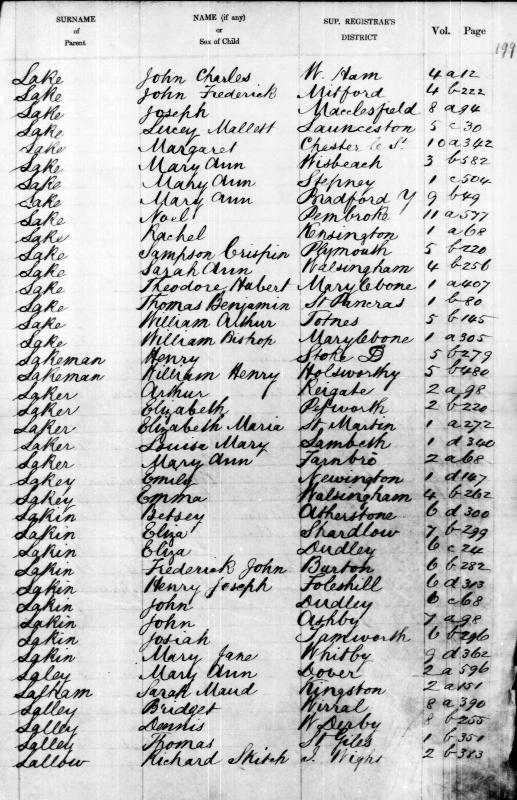 SURNAME of Parent NAME (if any) or Sex of Child SUP. REGISTRAR'S DISTRICT Vol. Page
199
Lake John Charles W. Ham 4 a 12
Lake John Frederick Mitford 4 b 222
Lake Joseph Macclesfield 8 a 94
Lake Lucey Mallett Launceston 5 c 30
Lake Margaret Chester le St 10 a 342
Lake Mary Ann Wisbeach 3 b 582
Lake Mary Ann Stepney 1 c 504
Lake Mary Ann Bradford Y 9 b 49
Lake Noel Pembroke 11 a 577
Lake Rachel Kensington 1 a 68
Lake Sampson Crispin Plymouth 5 b 220
Lake Sarah Ann Walsingham 4 b 256
Lake Theodore Hubert Marylebone 1 a 407
Lake Thomas Benjamin St Pancras 1 b 80
Lake William Arthur Totnes 5 b 145
Lake William Bishop Marylebone 1 a 305
Lakeman Henry Stoke D 5 b 279
Lakeman William Henry Holsworthy 5 b 480
Laker Arthur Reigate 2 a 98
Laker Elizabeth Petworth 2 b 220
Laker Elizabeth Maria St Martin 1 a 272
Laker Louisa Mary Lambeth 1 d 340
Laker Mary Ann Farnbro 2 a 68
Lakey Emily Newington 1 d 147
Lakey Emma Walsingham 4 b 262
Lakin Betsey Atherstone 6 d 300
Lakin Eliza Shardlow 7 b 299
Lakin Eliza Dudley 6 c 24
Lakin Frederick John Burton 6 b 282
Lakin Henry Joseph Foleshill 6 d 313
Lakin John Dudley 6 c 68
Lakin John Ashby 7 a 98
Lakin Josiah Tamworth 6 b 296
Lakin Mary Jane Whitby 9 d 362
Laley Mary Ann Dover 2 a 596
Laltham Sarah Maud Kingston 2 a 151
Lalley Bridget Wirral 8 a 390
Lalley Dennis W Derby 8 b 255
Lalley Thomas St Giles 1 b 351
Lallow Richard Skitch I. Wight 2 b 313